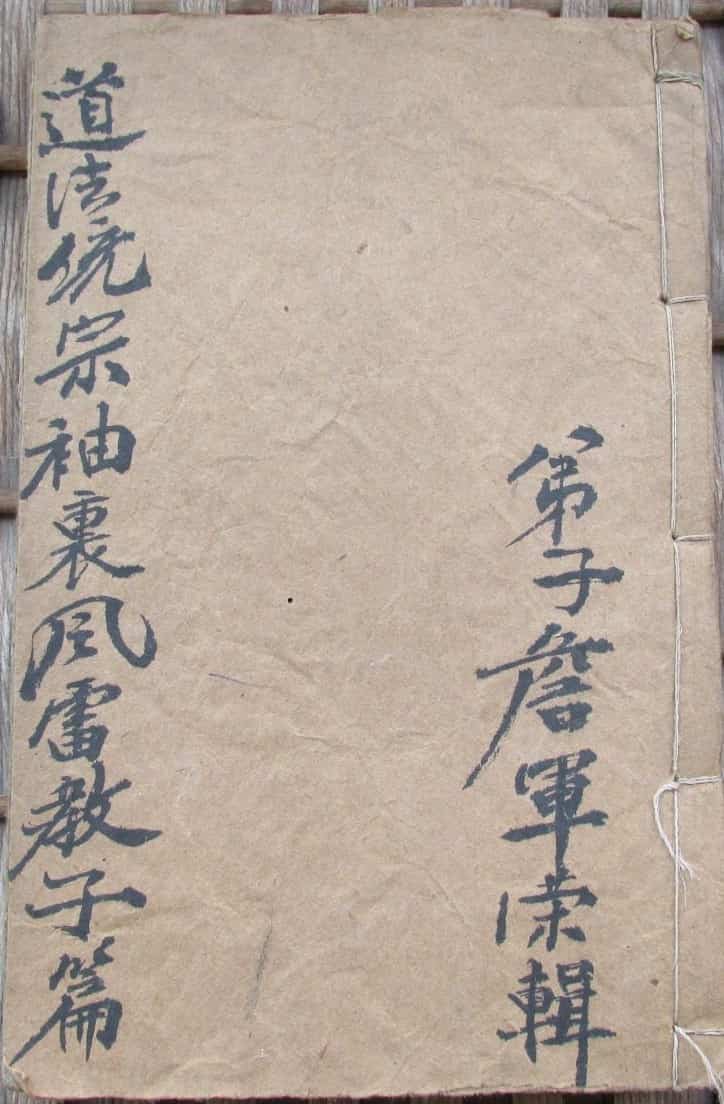 弟子詹軍荣輯
道法统宗袖裏风雷教子篇